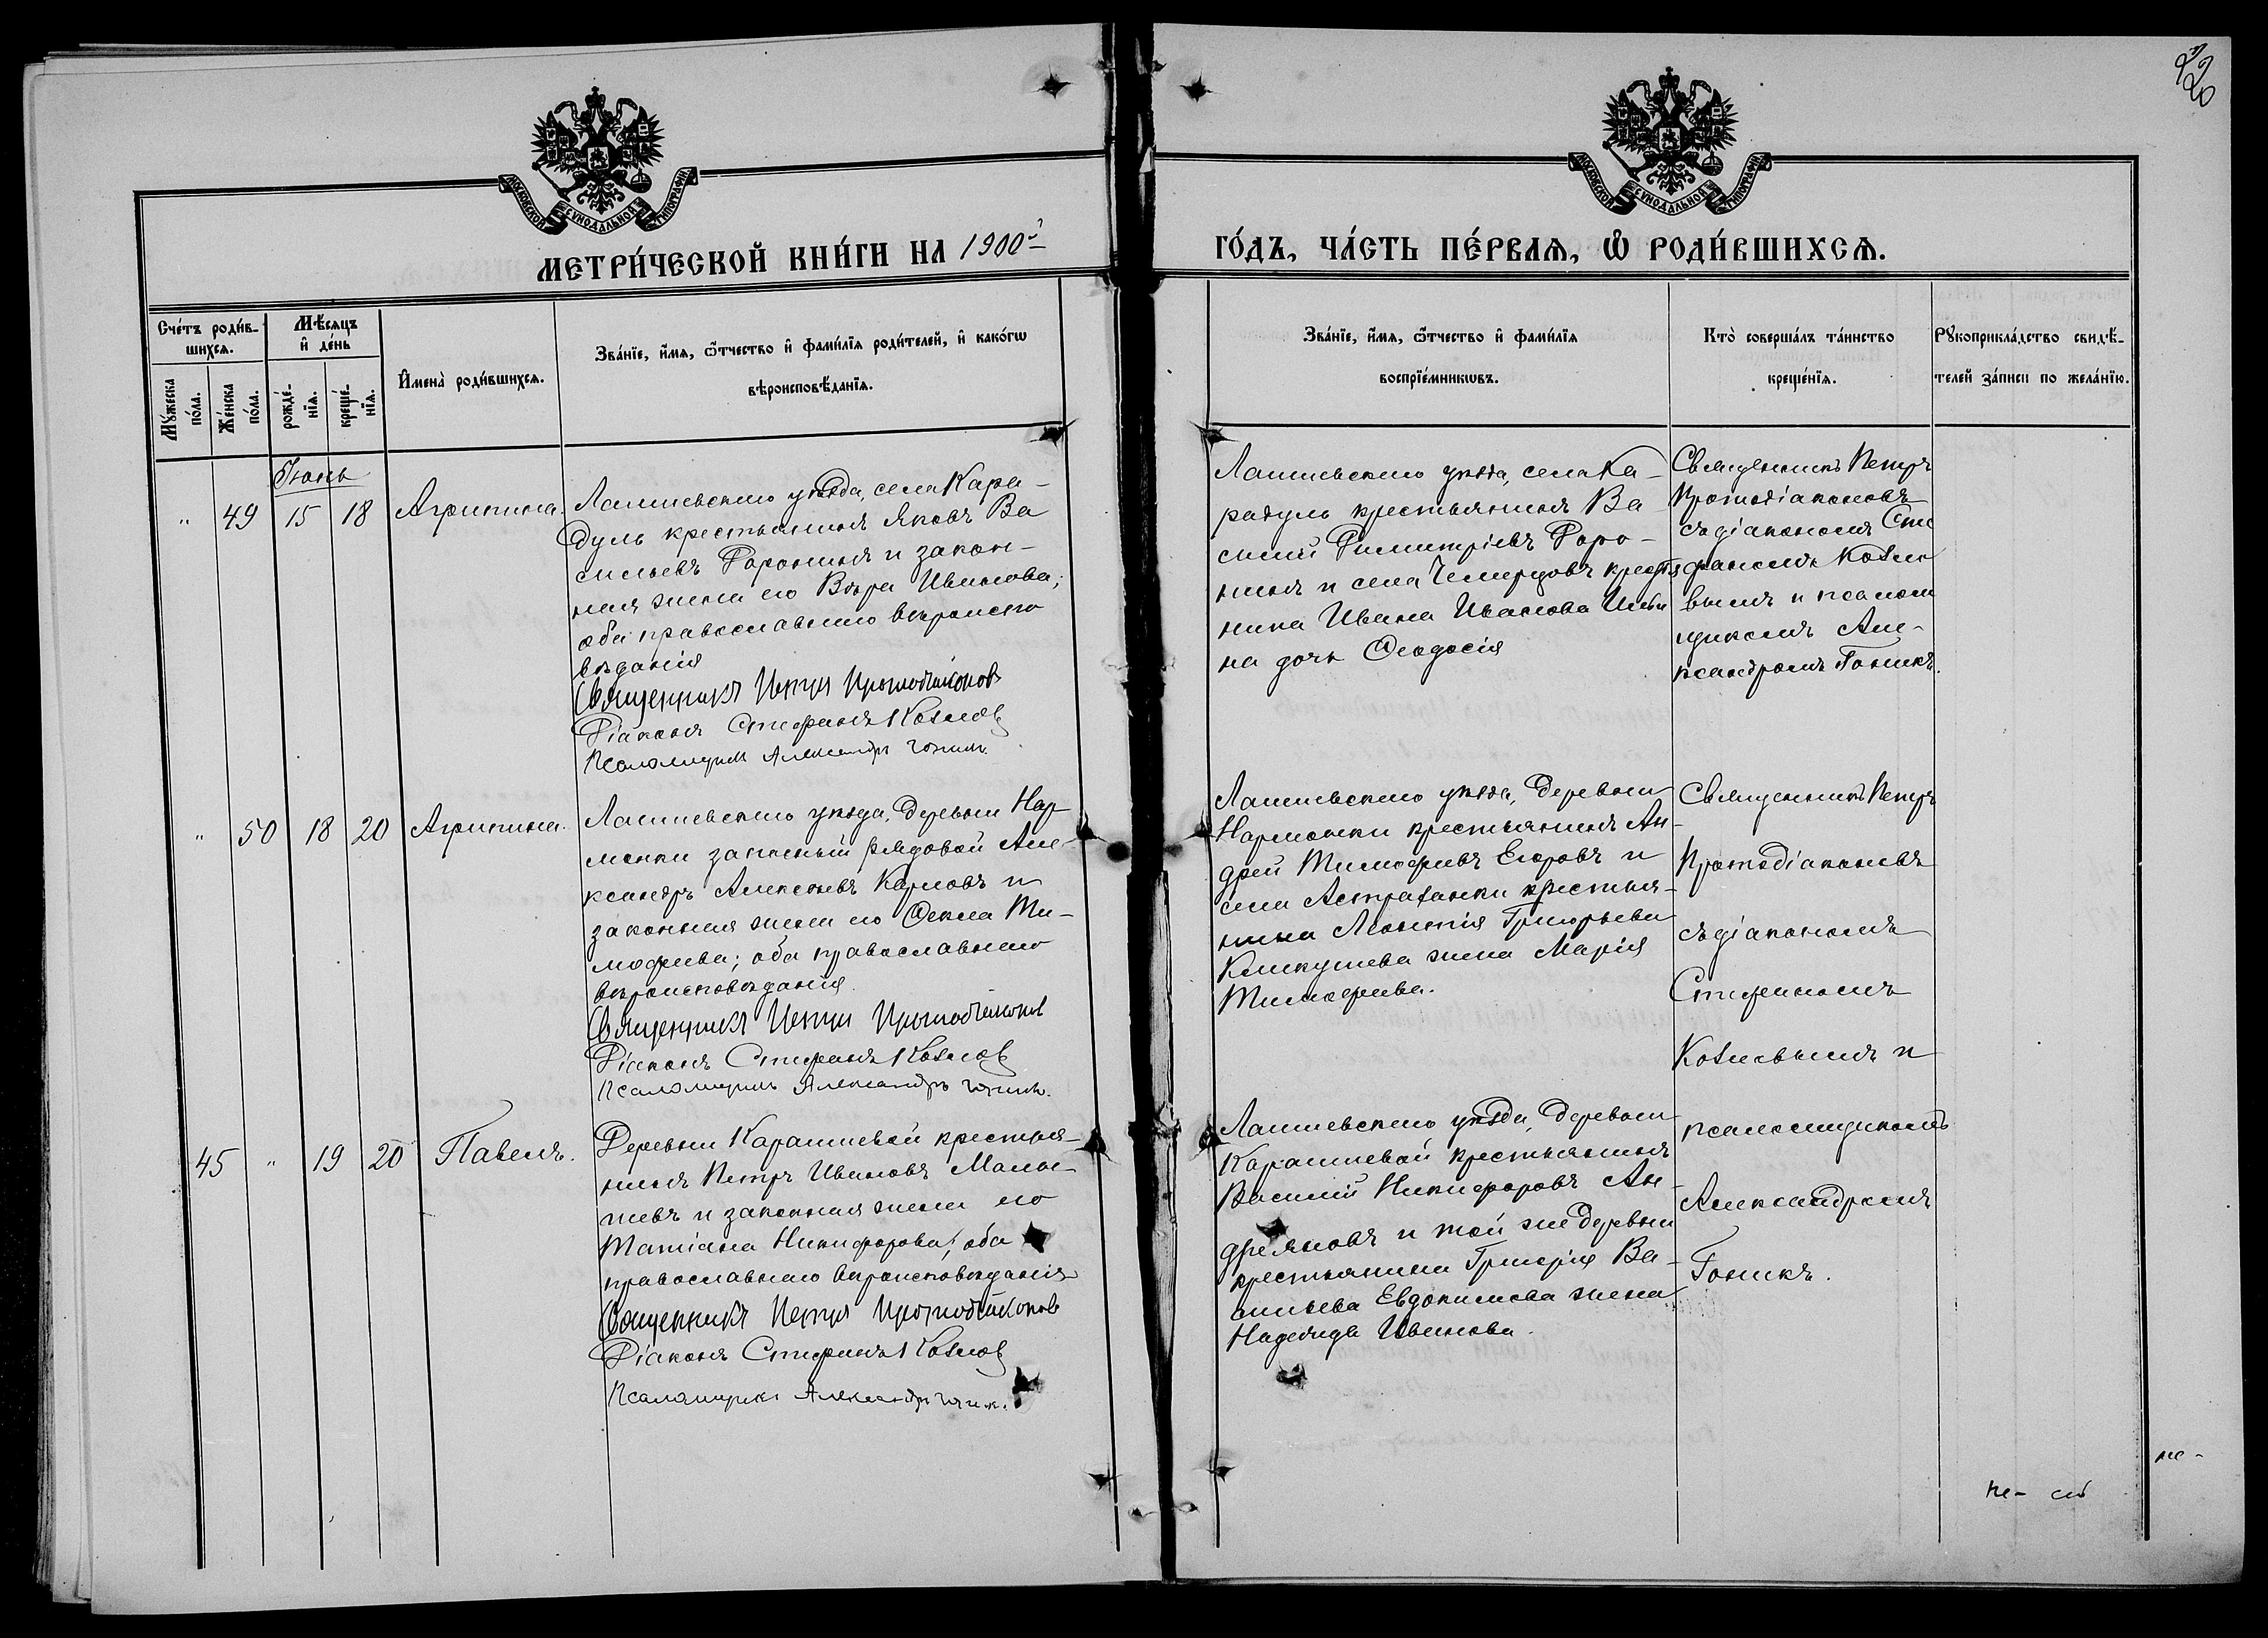 220
МОСКОВСКОЙ СѴНОДАЛЬНОЙ ТИПОГРАФІИ
МОСКОВСКОЙ СѴНОДАЛЬНОЙ ТИПОГРАФІИ
МЕТРИ́ЧЕСКОЙ КНИ́ГИ НА 1900й
ГО́ДЪ, ЧА́СТЬ ПЕ́РВАѦ, Ѡ҆ РОДИ́ВШИХСѦ.
Сче́тъ роди́в-
шихсѧ.
Мѣ́сѧцъ
и҆ де́нь
Мꙋ́жеска
по́ла.
Же́нска
по́ла.
рожде́-
нїѧ.
креще́-
нїѧ.
И҆мена̀ роди́вшихсѧ.
Зва́нїе, и҆́мѧ, ѻ҆́тчество и҆ фами́лїѧ роди́телей, и҆ како́гѡ
вѣроисповѣ́данїѧ.
Зва́нїе, и҆́мѧ, ѻ҆́тчество и҆ фами́лїѧ
воспрїе́мникѡвъ.
Кто̀ соверша́лъ та́инство
креще́нїѧ.
Рꙋкоприкла́дство свидѣ́-
телей за́писи по жела́нїю.
Іюнь
" 49 15 18 Агрипина.
Лаишевскаго уѣзда, села Кара-
дуль крестьянинъ Яковъ Ва
сильевъ Фаронинъ и закон-
ная жена его Вѣра Иванова;
оба православнаго вѣроиспо
вѣданія
Священникъ Петръ Протодіаконовъ
Діаконъ Стефанъ Козлов
Псаломщикъ Александръ Гоникъ.
Лаишевскаго уѣзда, села Ка-
радуль крестьянинъ Ва
силій Димитріевъ Форо-
нинъ и села Чемерцовъ крестья
нина Ивана Иванова
на дочь Ѳеодосія
Священникъ Петръ
Протодіаконовъ
съ діакономъ Сте
фаномъ Козло
вымъ и псалом
щикомъ Але-
ксандромъ Гоникъ.
" 50 18 20 Агрипина.
Лаишевскаго уѣзда, деревни Нар
монки запасный рядовой Але-
ксандръ Алексѣевъ Карповъ и
законная жена его Ѳекла Ти-
мофеева; оба православнаго
вѣроисповѣданія.
Священникъ Петръ Протодіаконовъ
Діаконъ Стефанъ Козлов
Псаломщикъ Александръ Гоникъ.
Лаишевскаго уѣзда, деревни
Нармонки крестьянинъ Ан-
дрей Тимофеевъ Егоровъ и
села Астраханки крестья-
нина Леонтія Григорьева
жена Марія
Тимофеева.
Священникъ Петръ
Протодіаконовъ
съ діакономъ
Стефаномъ
Козловымъ и
псаломщикомъ
Александромъ
Гоникъ.
45 " 19 20 Павелъ.
Деревни Карашиевой крестья-
нинъ Петръ Ивановъ Малы-
шевъ и законная жена его
Татіана Никифорова; оба
православнаго вѣроисповѣданія
Священникъ Петръ Протодіаконовъ
Діаконъ Стефанъ Козлов
Псаломщикъ Александръ Гоникъ.
Лаишевскаго уѣзда, деревни
Карашиевой крестьянинъ
Василій Никифоровъ Ан-
дреяновъ и той же деревни
крестьянина Григорія Ва-
сильева Евдокимова жена
Надежда Иванова.